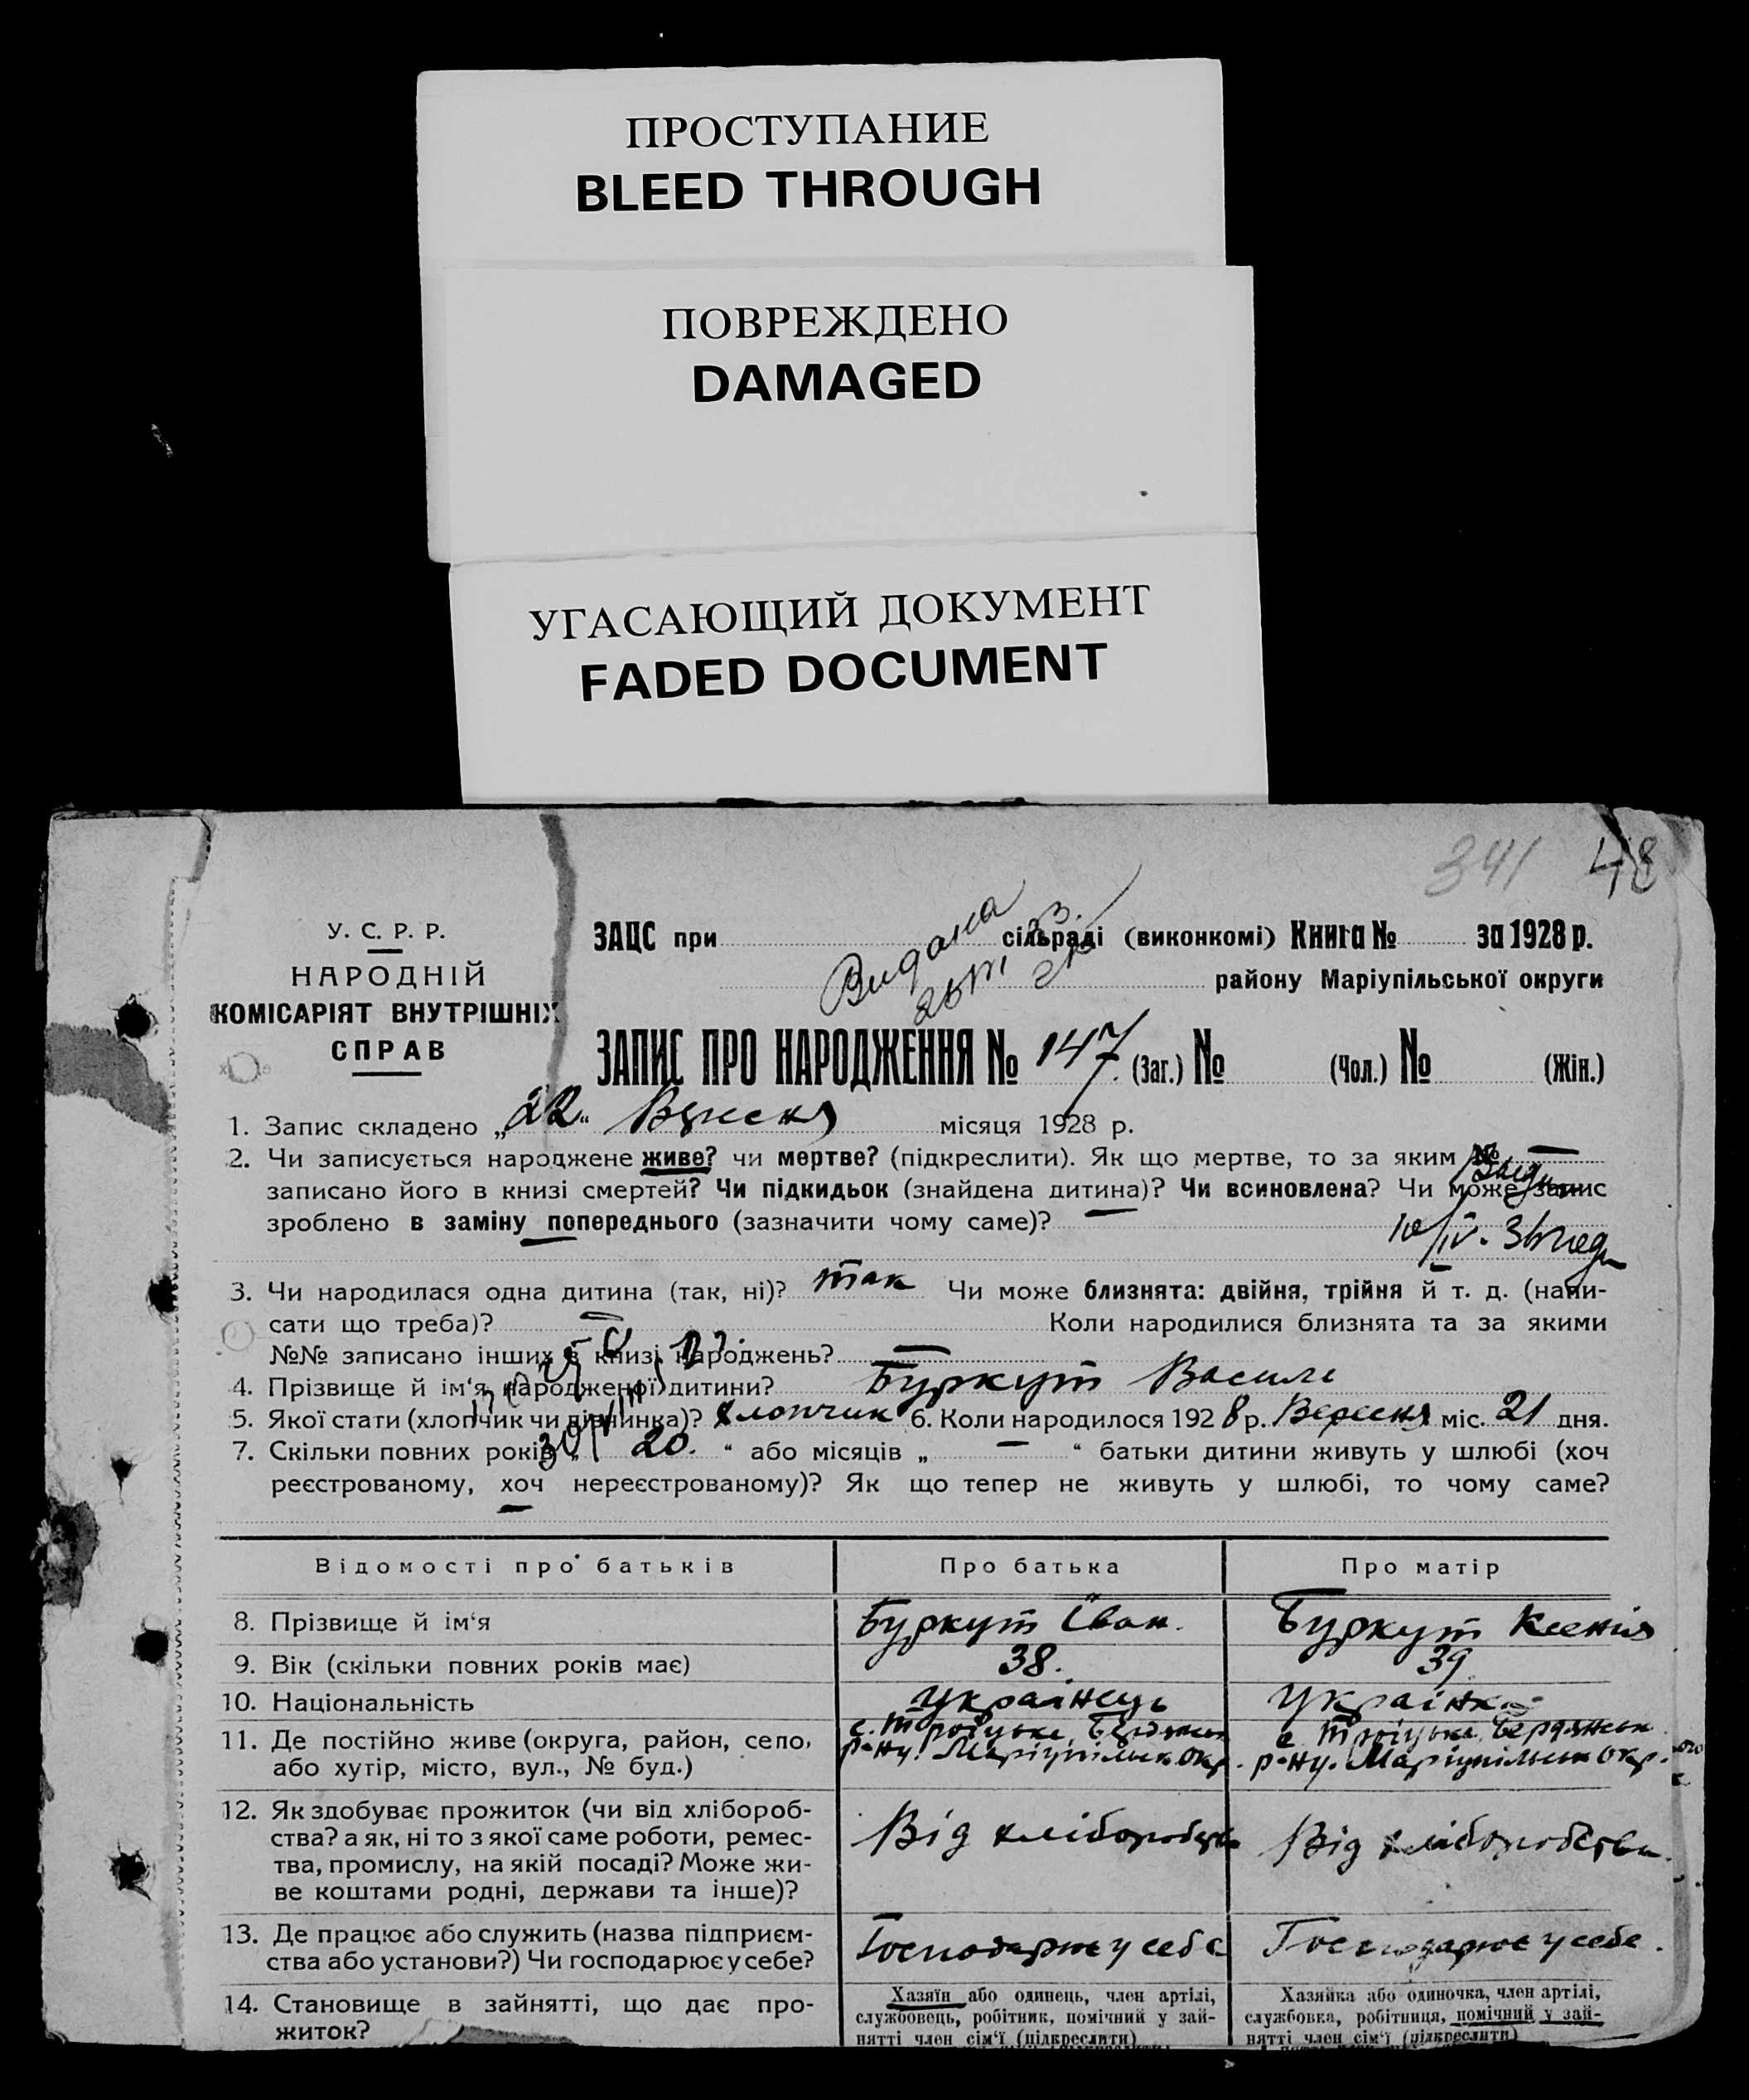 ПРОСТУПАНИЕ
BLEED THROUGH
ПОВРЕЖДЕНО
DAMAGED
УГАСАЮЩИЙ ДОКУМЕНТ
FADED DOCUMENT
341 48
У. С. Р. Р.
НАРОДНІЙ
КОМІСАРІЯТ ВНУТРІШНІХ
СПРАВ
Видана
ЗАЦС при сільраді (виконкомі) Книга № за 1928 р.
району Маріупільської округи
ЗАПИС ПРО НАРОДЖЕННЯ № 147 (Заг.) № (Чол.) № (Жін.)
1. Запис складено „22“ Вересня місяця 1928 р.
2. Чи записується народжене живе? чи мертве? (підкреслити). Як що мертве, то за яким № —
записано його в книзі смертей? Чи підкидьок (знайдена дитина)? Чи всиновлена? Чи може запис
зроблено в заміну попереднього (зазначити чому саме)?
3. Чи народилася одна дитина (так, ні)? так Чи може близнята: двійня, трійня й т. д. (напи-
сати що треба)? — Коли народилися близнята та за якими
№№ записано інших в книзі народжень? —
4. Прізвище й ім‘я народженої дитини? Буркут Василь
5. Якої стати (хлопчик чи дівчинка)? хлопчик 6. Коли народилося 1928 р. Вересня міс. 21 дня.
7. Скільки повних років „ 20. “ або місяців „ — “ батьки дитини живуть у шлюбі (хоч
реєстрованому, хоч нереєстрованому)? Як що тепер не живуть у шлюбі, то чому саме?
Відомості про батьків Про батька Про матір
8. Прізвище й ім‘я Буркут Іван. Буркут Ксенія
9. Вік (скільки повних років має) 38. 39
10. Національність Українець Українка
11. Де постійно живе (округа, район, село, с. Троіцьке, Бердянськ с. Троіцьке, Бердянськ
або хутір, місто, вул., № буд.) р-ну. Маріупільск Окр. р-ну. Маріупільськ Окр.
12. Як здобуває прожиток (чи від хлібороб-
ства? а як, ні то з якої саме роботи, ремес- Від хліборобства Від хліборобства.
тва, промислу, на якій посаді? Може жи-
ве коштами родні, держави та інше)?
13. Де працює або служить (назва підприєм- Господарює у себе Господарює у себе.
ства або установи?) Чи господарює у себе?
14. Становище в зайнятті, що дає про- Хазяїн або одинець, член артілі, Хазяйка або одиночка, член артілі,
житок? службовець, робітник, помічний у зай- службовка, робітниця, помічний у зай-
нятті член сім‘ї (підкреслити) нятті член сім‘ї (підкреслити)